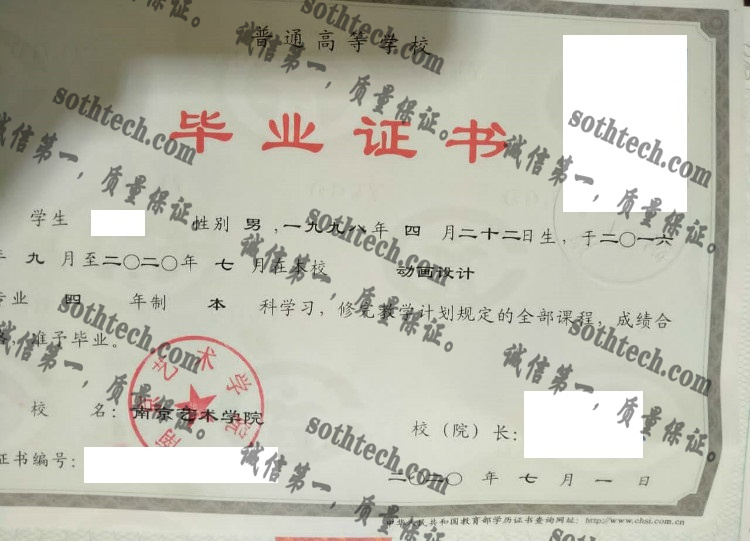 普通高等学校
毕业证书
学生 性别 男,一九九八年 四 月二十二日生,于二〇一六
年 九 月至二〇二〇年 七 月在本校 动画设计
专业 四 年制 本 科学习,修完教学计划规定的全部课程,成绩合
格,准予毕业。
艺术学院
校 名:南京艺术学院
校(院)长:
证书编号:
二〇二〇 年 七 月 一 日
中华人民共和国教育部学历证书查询网址:http://www.chsi.com.cn
sothtech.com
诚信第一,质量保证。
sothtech.com
诚信第一,质量保证。
sothtech.com
诚信第一,质量保证。
sothtech.com
诚信第一,质量保证。
sothtech.com
诚信第一,质量保证。
sothtech.com
诚信第一,质量保证。
sothtech.com
诚信第一,质量保证。
sothtech.com
诚信第一,质量保证。